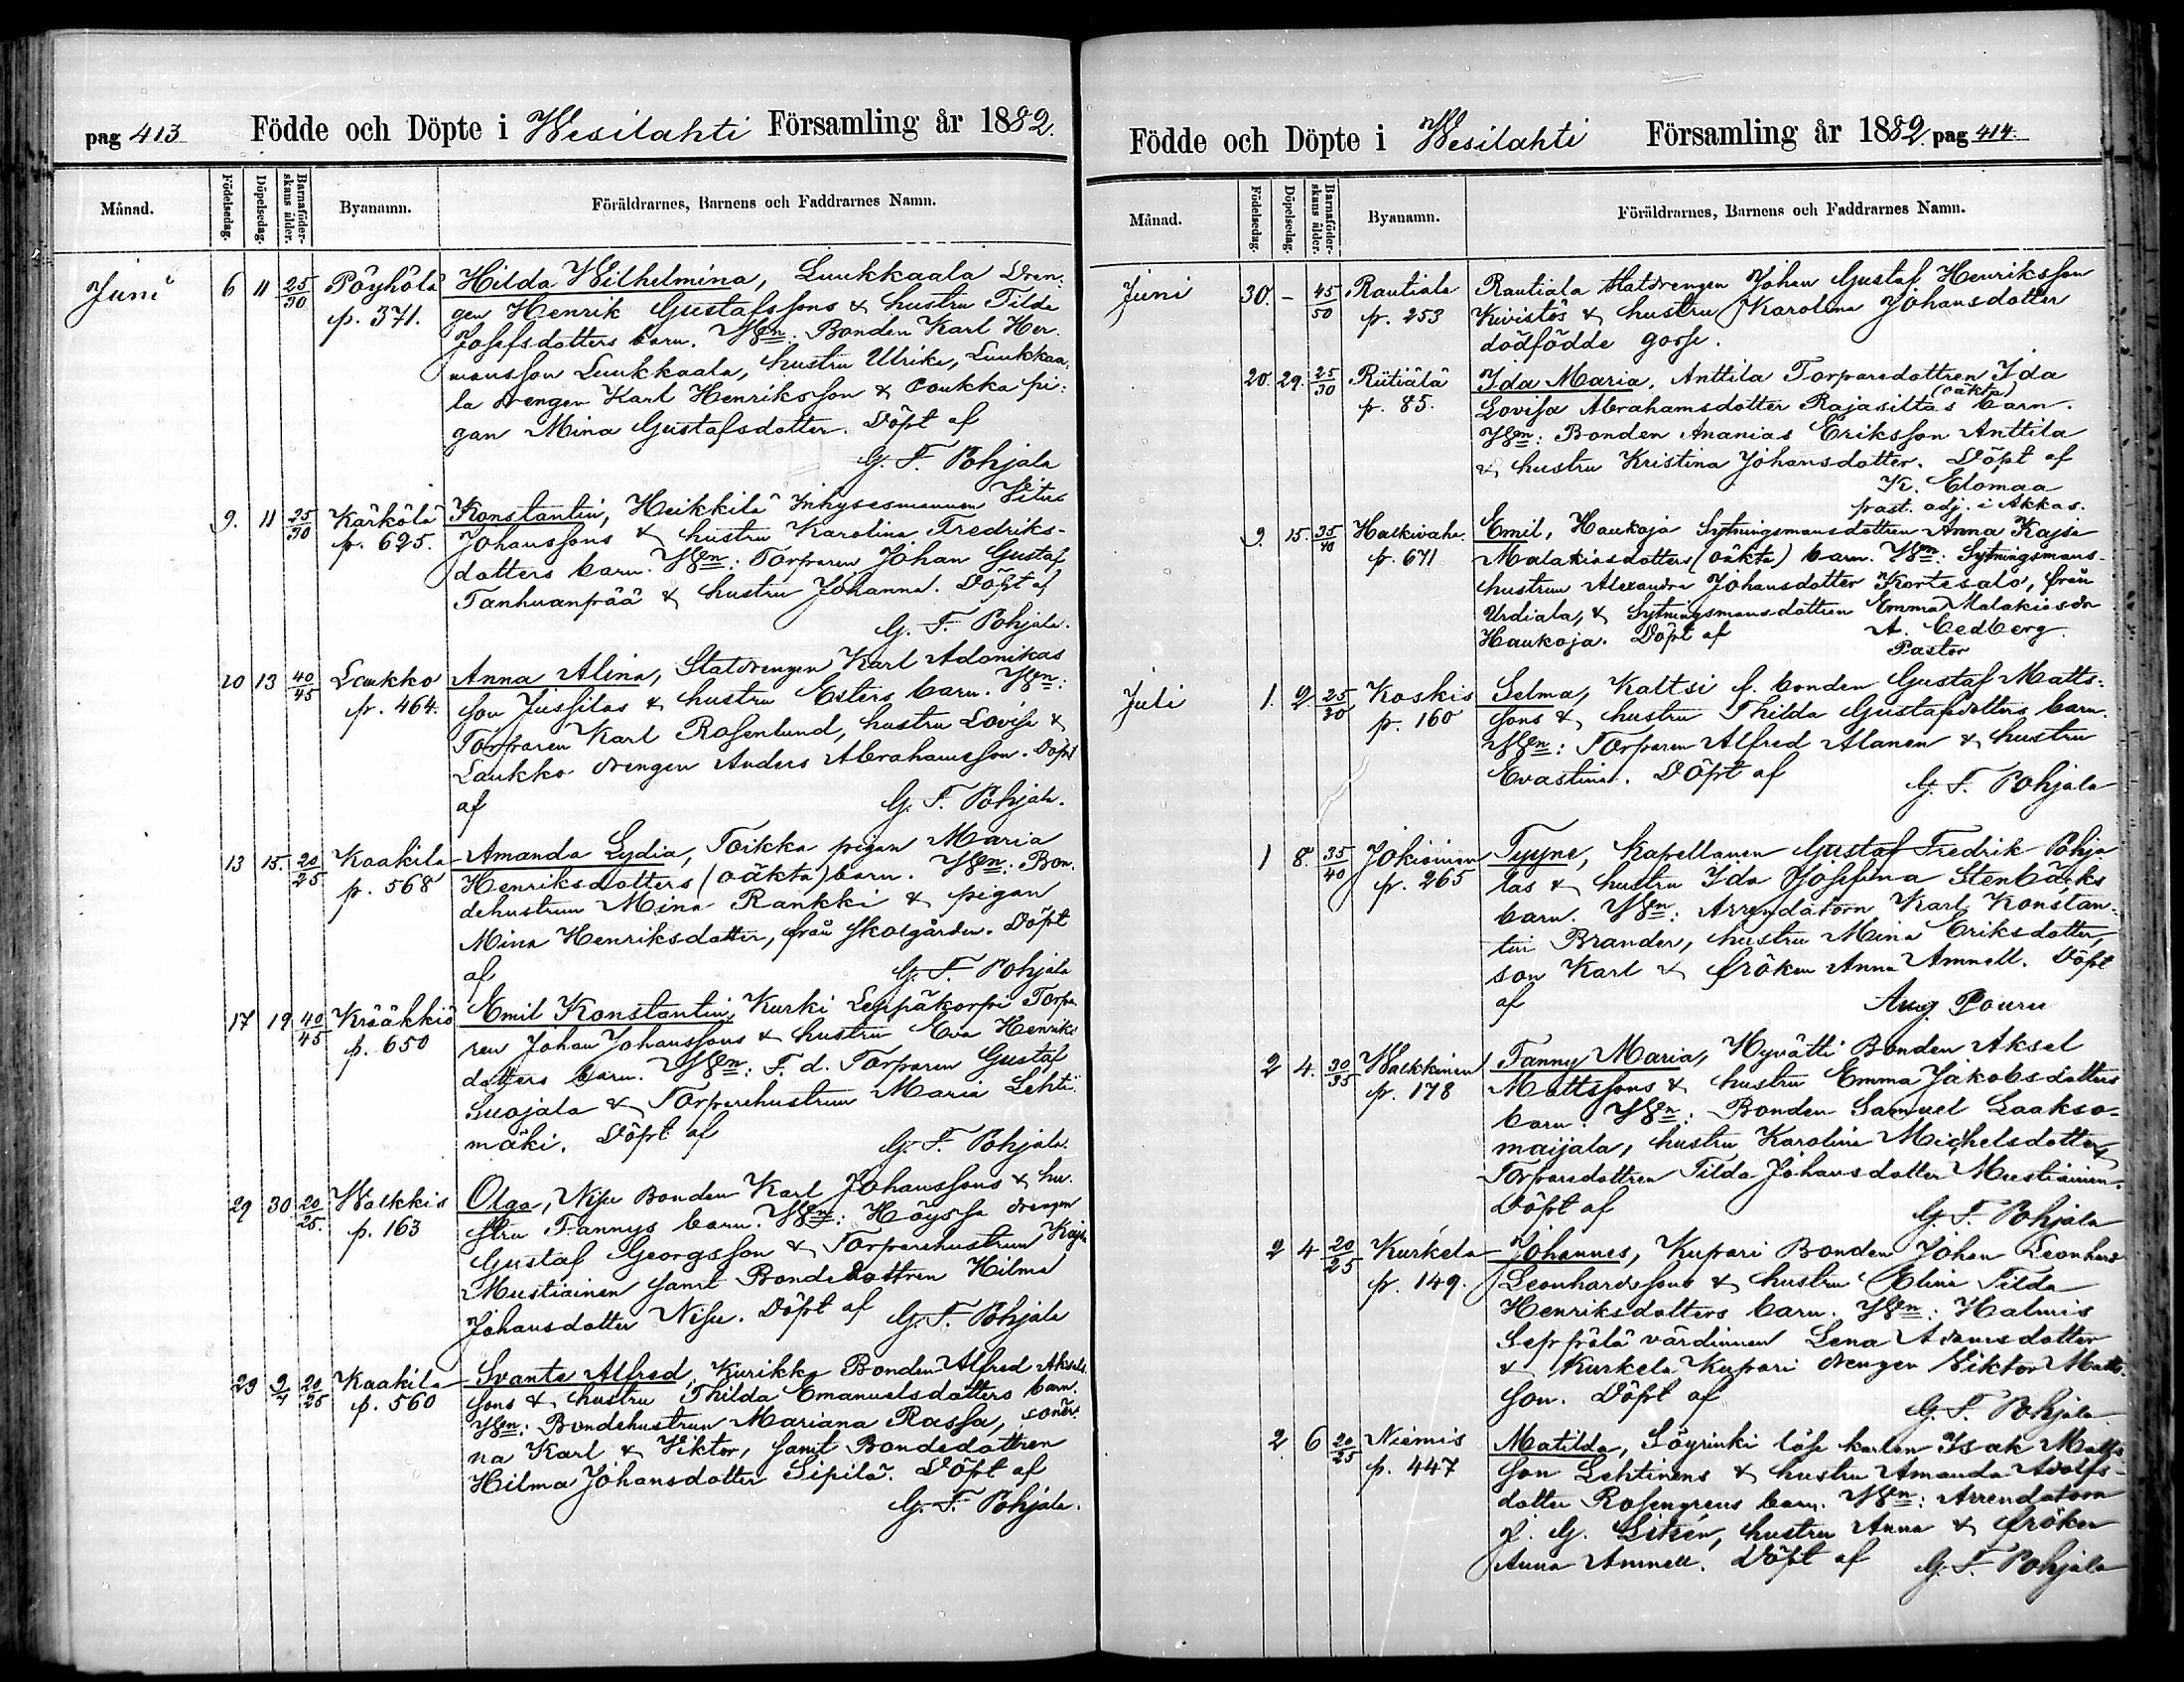 pag 413 Födde och Döpte i Wesilahti Församling år 1882.
Månad. Födelsedag. Döpelsedag. Barnaföder-skans ålder. Byanamn. Föräldrarnes, Barnens och Faddrarnes Namn.
Juni 6 11 25/30 Pöyhölä Hilda Wilhelmina, Luukkaala Dren-
p. 371. gen Henrik Gustafssons & hustru Tilda
Josefsdotters barn. Wn: Bonden Karl Her-
mansson Luukkaala, hustru Ulrika, Luukkaa-
la drengen Karl Henriksson & Coukka pi-
gan Mina Gustafsdotter. Döpt af
G. F. Pohjala
9. 11 25/30 Kärkölä Konstantin, Heikkilä Inhysesmannen Vitus
p. 625. Johanssons & hustru Karolina Fredriks-
dotters barn. Wn: Torparen Johan Gustaf
Tanhuanpää & hustru Johanna. Döpt af
G. F. Pohjala.
10 13 40/45 Laukko Anna Alina, Statdrengen Karl Adonikas
p. 464. son Jussilas & hustru Esters barn. Wn:
Torparen Karl Rosenlund, hustru Lovisa &
Laukko drengen Anders Abrahamsson. Döpt
af G. F. Pohjala.
13 15. 20/25 Kaakila Amanda Lydia, Toikka pigan Maria
p. 568 Henriksdotters (oäkta) barn. Wn: Bon-
dehustrun Mina Rankki & pigan
Mina Henriksdotter, från Skolgården. Döpt
af G. F. Pohjala
17 19 40/45 Krääkkiö Emil Konstantin, Kurki Leppäkorpi Torpa-
p. 650 ren Johan Johanssons & hustru Eva Henriks
dotters barn. Wn: F. d. Torparen Gustaf
Suojala & Torparehustrun Maria Lehti-
mäki. Döpt af G. F. Pohjala.
29 30 20/25. Walkkis Olga, Nisu Bonden Karl Johanssons & hu-
p. 163 stru Fannys barn. Wn: Höyssä drengen
Gustaf Georgsson & Torparehustrun Kajsa
Mustiainen samt Bondedottren Hilma
Johansdotter Nisu. Döpt af G. F. Pohjala
29 9/7 20/25 Kaakila Svante Alfred, Kurikka Bonden Alfred Aksels-
p. 560 sons & hustru Thilda Emanuelsdotters barn.
Wn: Bondehustrun Mariana Rassa, söner-
na Karl & Viktor, samt Bondedottren
Hilma Johansdotter Sipilä. Döpt af
G. F. Pohjala.
Födde och Döpte i Wesilahti Församling år 1882. pag 414.
Månad. Födelsedag. Döpelsedag. Barnaföder-skans ålder. Byanamn. Föräldrarnes, Barnens och Faddrarnes Namn.
Juni 30. - 45/50 Rautiala Rautiala Statdrengen Johan Gustaf Henriksson
p. 253 Kivistös & hustru Karolina Johansdotter
dödfödde gosse.
20. 29. 25/30 Riitiälä Ida Maria, Anttila Torparedottren Ida
p. 85. Lovisa Abrahamsdotter Rajasiltas (oäkta) barn.
Wn: Bonden Ananias Eriksson Anttila
& hustru Kristina Johansdotter. Döpt af
K. Elomaa
past. adj. i Akkas.
9. 15. 35/40 Halkivaha Emil, Haukoja Sytningsmansdottren Anna Kajsa
p. 671 Malakiasdotters (oäkta) barn. Wn: Sytningsmans-
hustrun Alexandra Johansdotter Kortesalo, från
Urdiala, & Sytningsmansdottren Emma Malakiasdr
Haukoja. Döpt af A. Cedberg.
Pastor
Juli 1. 2 25/30 Koskis Selma, Kaltsi f. bonden Gustaf Matts-
p. 160 sons & hustru Thilda Gustafsdotters barn.
Wn: Torparen Alfred Alanen & hustru
Evastina. Döpt af G. F. Pohjala
1 8. 35/40 Jokioinen Tyyne, Kapellanen Gustaf Fredrik Pohja
p. 265 las & hustru Ida Josefina Stenbäcks
barn. Wn: Arrendatorn Karl Konstan-
tin Brander, hustru Mina Eriksdotter,
son Karl & fröken Anna Amnell. Döpt
af Aug. Pouru
2 4. 30/35 Walkkinen Fanny Maria, Hyvätti Bonden Aksel
p. 178 Mattssons & hustru Emma Jakobsdotters
barn. Wn: Bonden Samuel Laakso-
maijala, hustru Karolina Michelsdotter &
Torparedottren Tilda Johansdotter Mustiainen.
Döpt af G. F. Pohjala
2 4 20/25 Kurkela Johannes, Kupari Bonden Johan Leonhard
p. 149. Leonhardssons & hustru Elina Tilda
Henriksdotters barn. Wn: Halmis
Seppälä värdinnan Lena Adamsdotter
& Kurkela Kupari drengen Viktor Matts-
son. Döpt af G. F. Pohjala
2. 6 20/25 Niemis Matilda, Söyrinki löse karlen Isak Matts
p. 447 son Lehtinens & hustru Amanda Adolfs-
dotter Rosengrens barn. Wn: Arrendatorn
J. G. Litzén, hustru Anna & fröken
Anna Amnell. Döpt af G. F. Pohjala